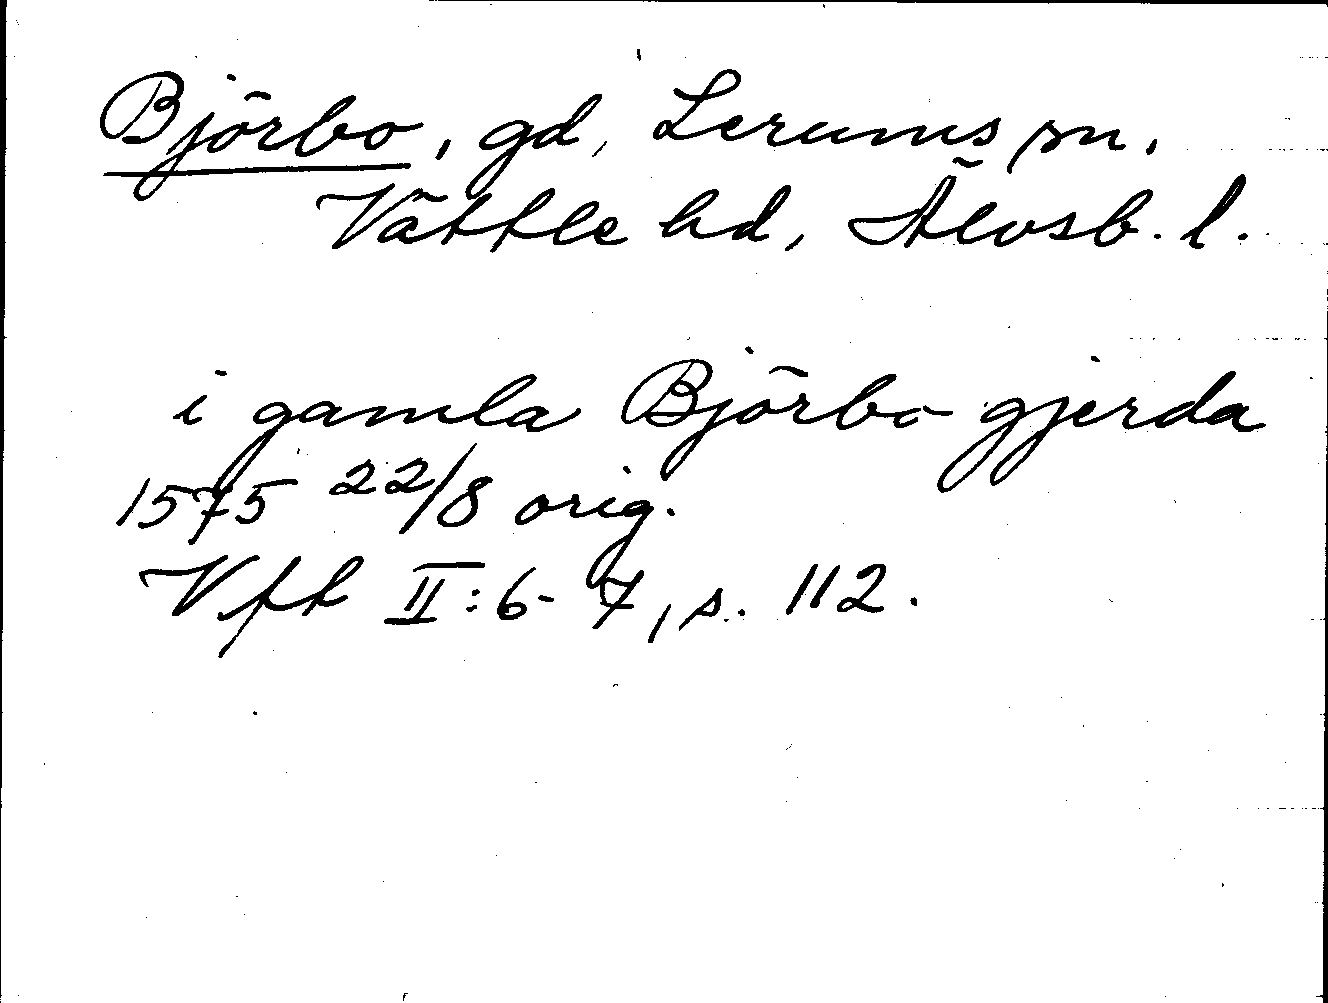 Björbo, gd, Lerums sn.
Vättle hd, Älvsb. l.
i gamla Björbo gjerda
1575 22/8 orig.
Vft II:6-7, s. 112.